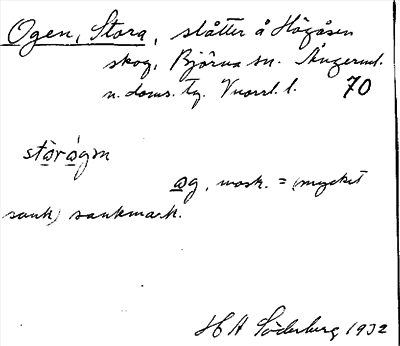 Ogen, Stora, slåtter å Högåsen
skog, Björna sn. Ångerml.
n. doms. tg. Vnorrl. l. 70
storogen
og, mask. = (mycket
sank) sankmark.
H A Söderberg 1932